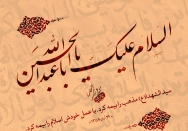 السلام علیک یا اباعبدالله الحسین
سید الشهدا(ع) مذهب را بیمه کرد. با عمل خودش اسلام را بیمه کرد.